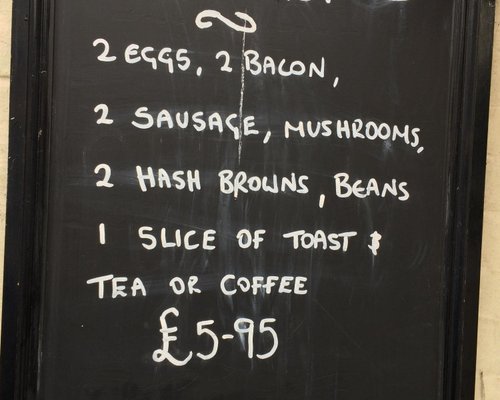 2 EGGS, 2 BACON,
2 SAUSAGE, MUSHROOMS,
2 HASH BROWNS, BEANS
1 SLICE OF TOAST &
TEA OR COFFEE
£5-95